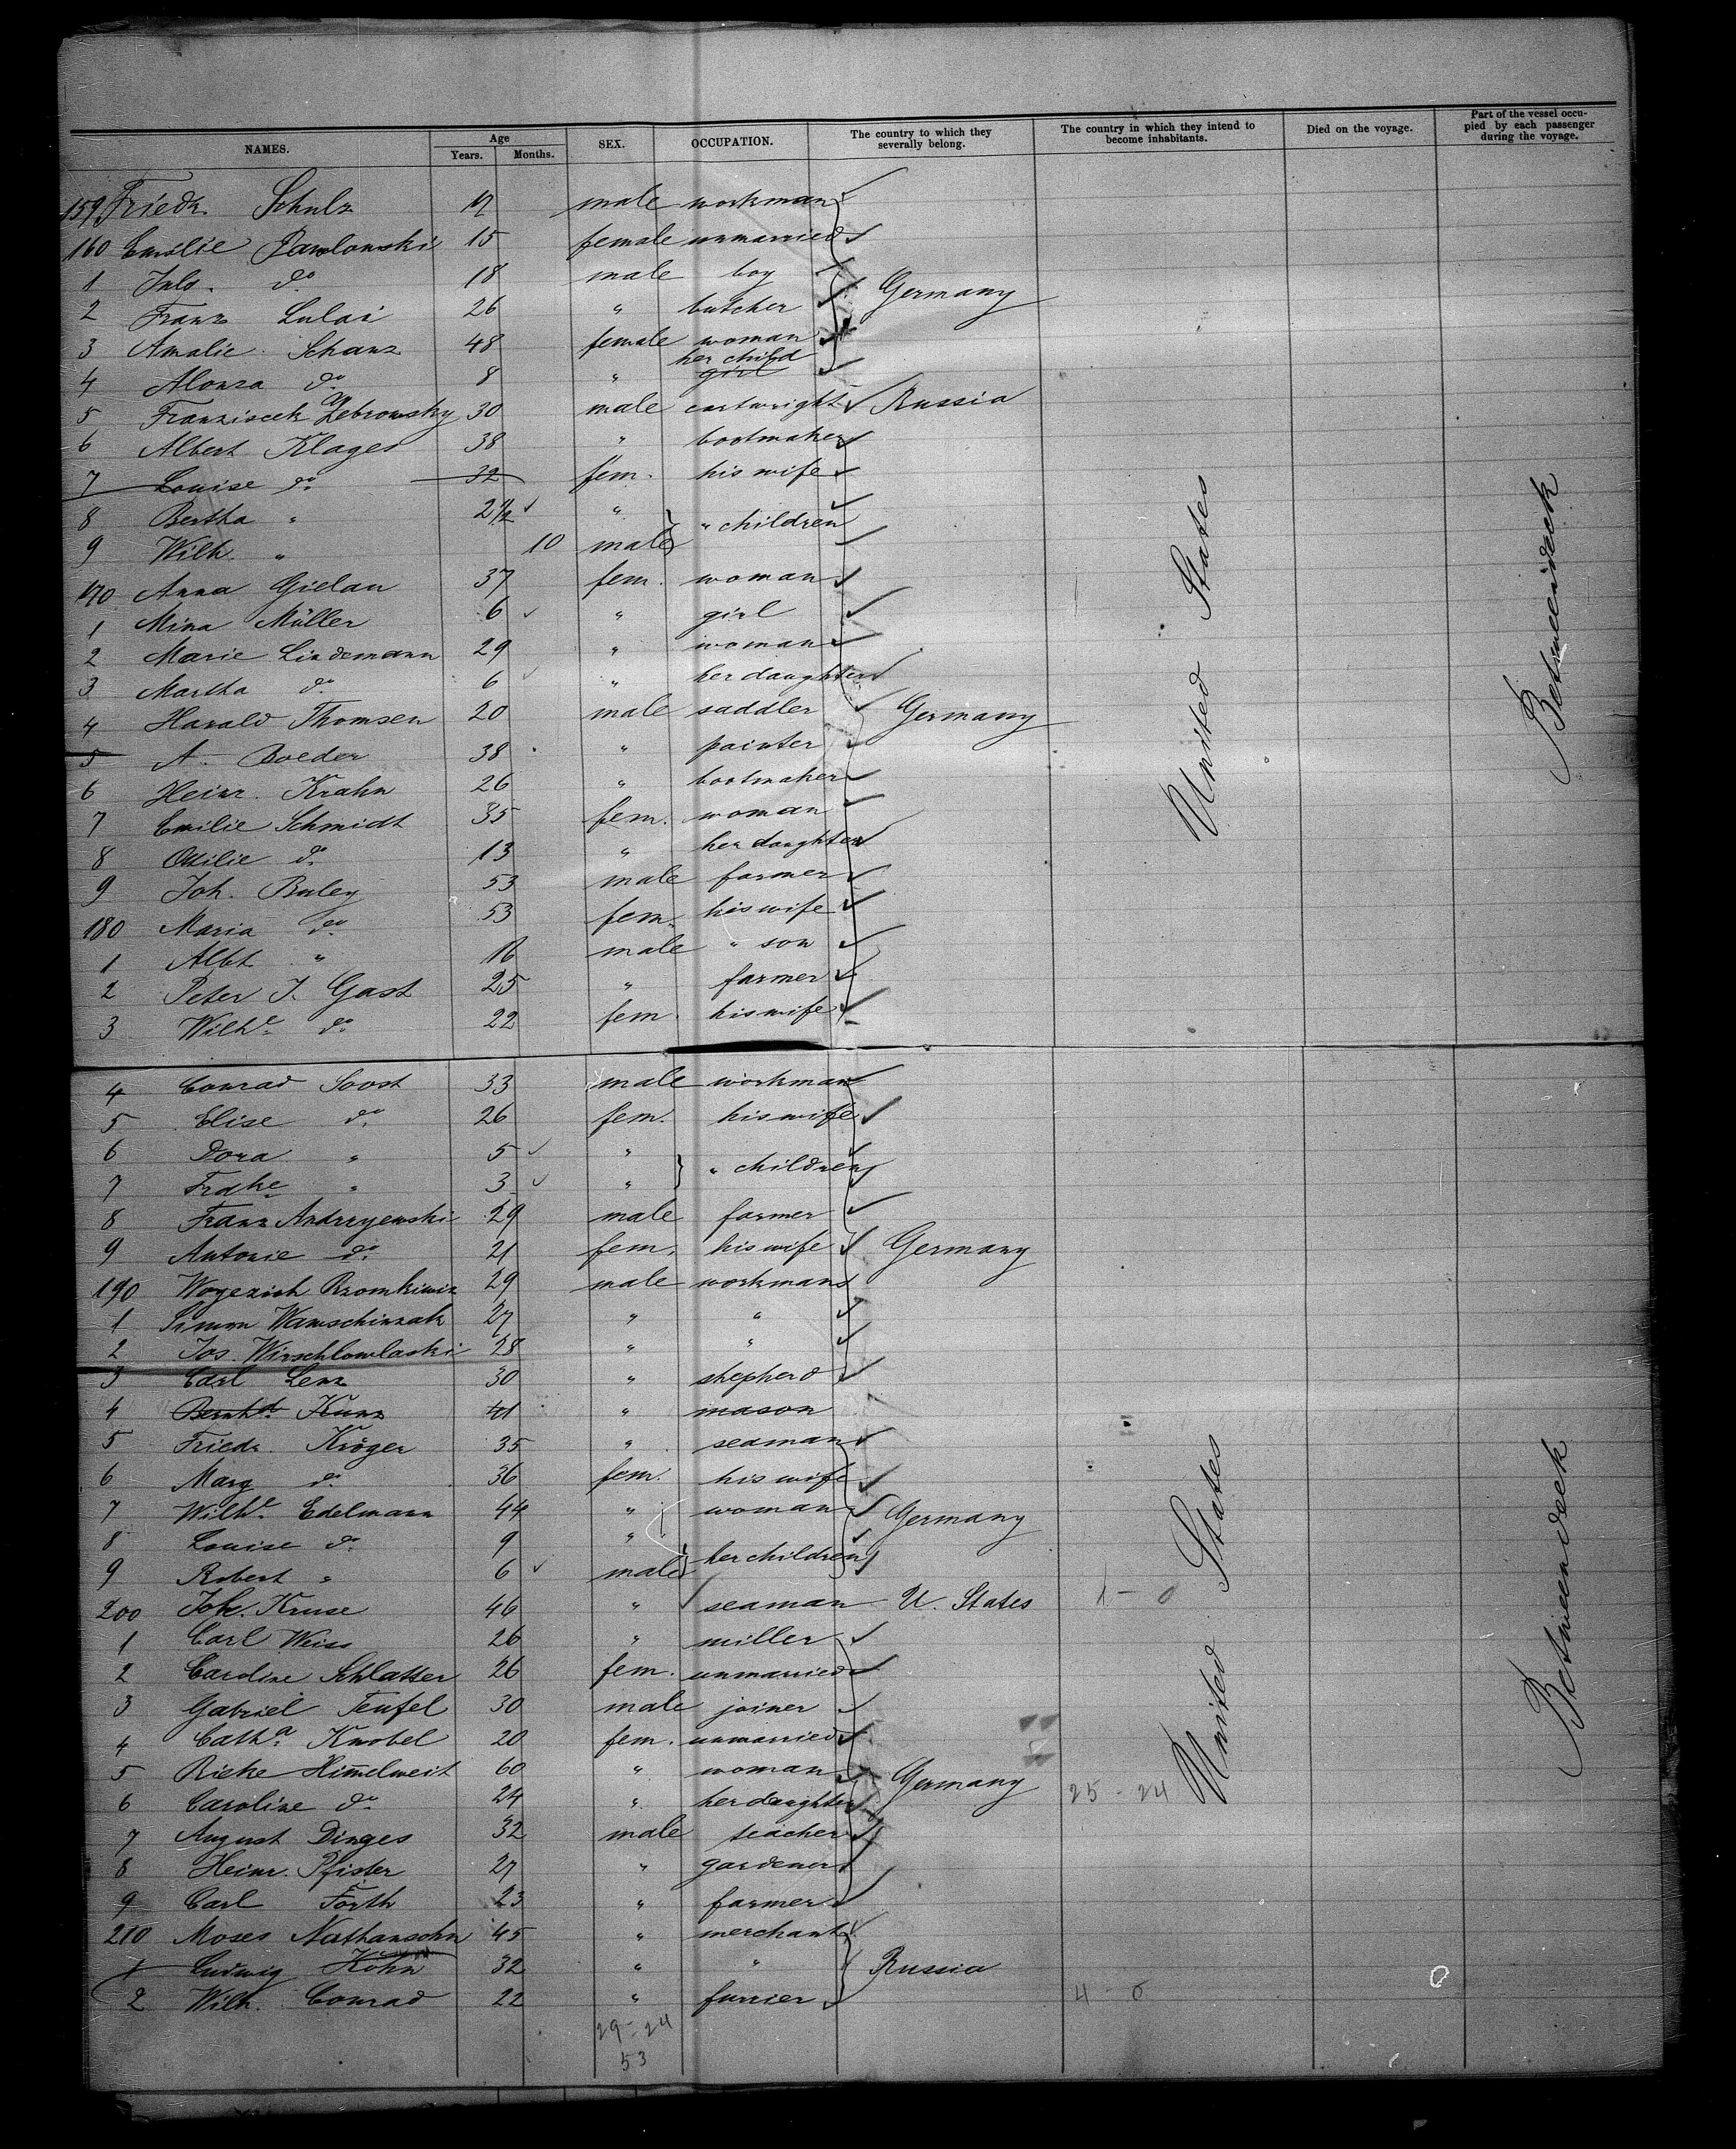 NAMES. Age Years. Months. SEX. OCCUPATION. The country to which they severally belong. The country in which they intend to become inhabitants. Died on the voyage. Part of the vessel occupied by each passenger during the voyage.
159 Friedr. Schulz 17 male workman
160 Emilie Pawlowski 15 female unmarried
1 Juls. do 18 male boy
2 Franz Lulai 26 " butcher Germany
3 Amalie Schanz 48 female woman
4 Alonza do 8 " her child girl
5 Franziscek Zebrowsky 30 male cartwright Russia
6 Albert Klages 38 " bootmaker
7 Louise do 32 fem. his wife
8 Bertha " 2 1/2 " " children
9 Wilh. " 10 male
170 Anna Gielan 37 fem. woman
1 Mina Müller 6 " girl
2 Marie Lindemann 29 " woman
3 Martha do 6 " her daughter
4 Harald Thomsen 20 male saddler Germany
5 A. Boeder 38 " painter
6 Heinr. Krahn 26 " bootmaker
7 Emilie Schmidt 35 fem. woman
8 Ottilie do 13 " her daughter
9 Joh. Buley 53 male farmer
180 Maria do 53 fem. his wife
1 Albt. " 16 male " son
2 Peter J. Gast 25 " farmer
3 Wilhe. do 22 fem. his wife
4 Conrad Soost 33 male workman
5 Elise do 26 fem. his wife
6 Dora " 5 " " children
7 Frdke " 3 "
8 Franz Andrzyewski 29 male farmer
9 Antonie do 21 fem. his wife Germany
190 Woyezich Bromkiewiz 29 male workman
1 Simon Wawschinzak 27 " "
2 Jos. Wirschlowlaski 28 " "
3 Carl Lenz 30 " shepherd
4 Bernhd. Kunz 41 " mason
5 Friedr. Kröger 35 " seaman
6 Marg do 36 fem. his wife
7 Wilhe. Edelmann 44 " woman Germany
8 Louise do 9 " her children
9 Robert " 6 male
200 Joh. Kruse 46 " seaman U. States 1 - 0
1 Carl Weiss 26 " miller
2 Caroline Schlatter 26 fem. unmarried
3 Gabriel Teufel 30 male joiner
4 Catha. Knobel 20 fem. unmarried
5 Rieke Himelweit 60 " woman Germany
6 Caroline do 24 " her daughter 25 - 24
7 August Dinges 32 male teacher
8 Heinr. Pfister 27 " gardener
9 Carl Förth 23 " farmer
210 Moses Nathansohn 45 " merchant
1 Ludwig Köhn 32 " " Russia
2 Wilh. Conrad 22 " furrier 4 - 0
29 - 24
53
United States
Betweendeck
United States
Betweendeck